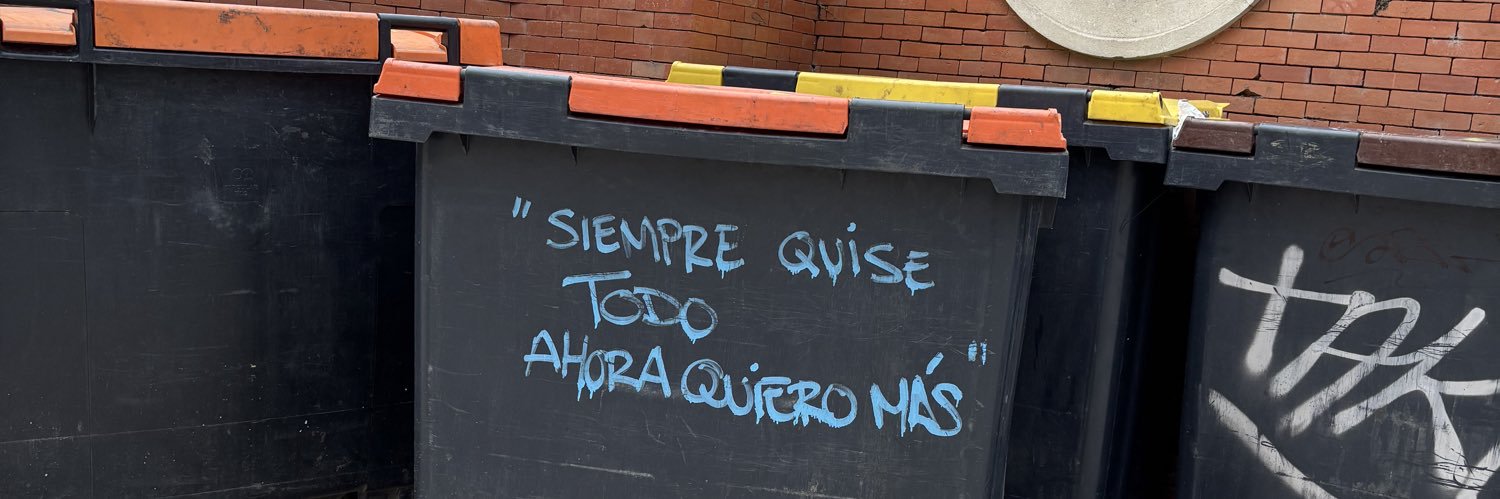 "SIEMPRE QUiSE
TODO
AHORA QUiERO MÁS"